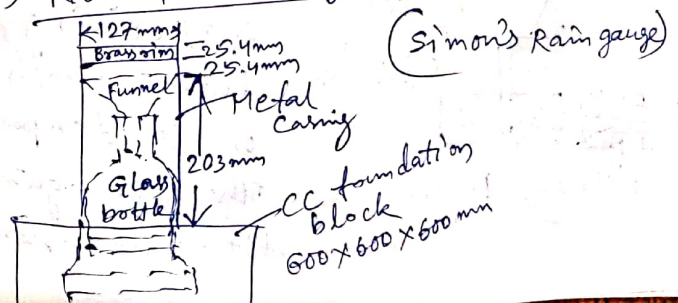 127mm
Brass rim
25.4mm
25.4mm
(Simon's Rain gauge)
Funnel
Metal
Casing
203mm
Glass
bottle
CC foundation
block
600X600X600 mm